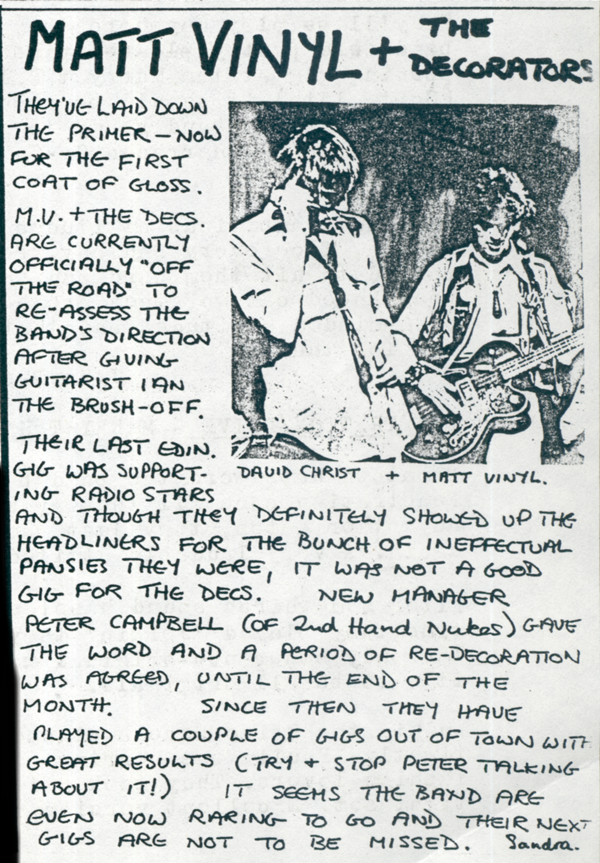 MATT VINYL + THE DECORATORS
THEY'VE LAID DOWN
THE PRIMER — NOW
FOR THE FIRST
COAT OF GLOSS.
M.V. + THE DECS.
ARE CURRENTLY
OFFICIALLY "OFF
THE ROAD" TO
RE-ASSESS THE
BAND'S DIRECTION
AFTER GIVING
GUITARIST IAN
THE BRUSH-OFF.
THEIR LAST EDIN.
GIG WAS SUPPORT-
ING RADIO STARS
DAVID CHRIST + MATT VINYL.
AND THOUGH THEY DEFINITELY SHOWED UP THE
HEADLINERS FOR THE BUNCH OF INEFFECTUAL
PANSIES THEY WERE, IT WAS NOT A GOOD
GIG FOR THE DECS. NEW MANAGER
PETER CAMPBELL (OF 2nd Hand Nukes) GAVE
THE WORD AND A PERIOD OF RE-DECORATION
WAS AGREED, UNTIL THE END OF THE
MONTH. SINCE THEN THEY HAVE
PLAYED A COUPLE OF GIGS OUT OF TOWN WITH
GREAT RESULTS (TRY + STOP PETER TALKING
ABOUT IT!) IT SEEMS THE BAND ARE
EVEN NOW RARING TO GO AND THEIR NEXT
GIGS ARE NOT TO BE MISSED. Sandra.